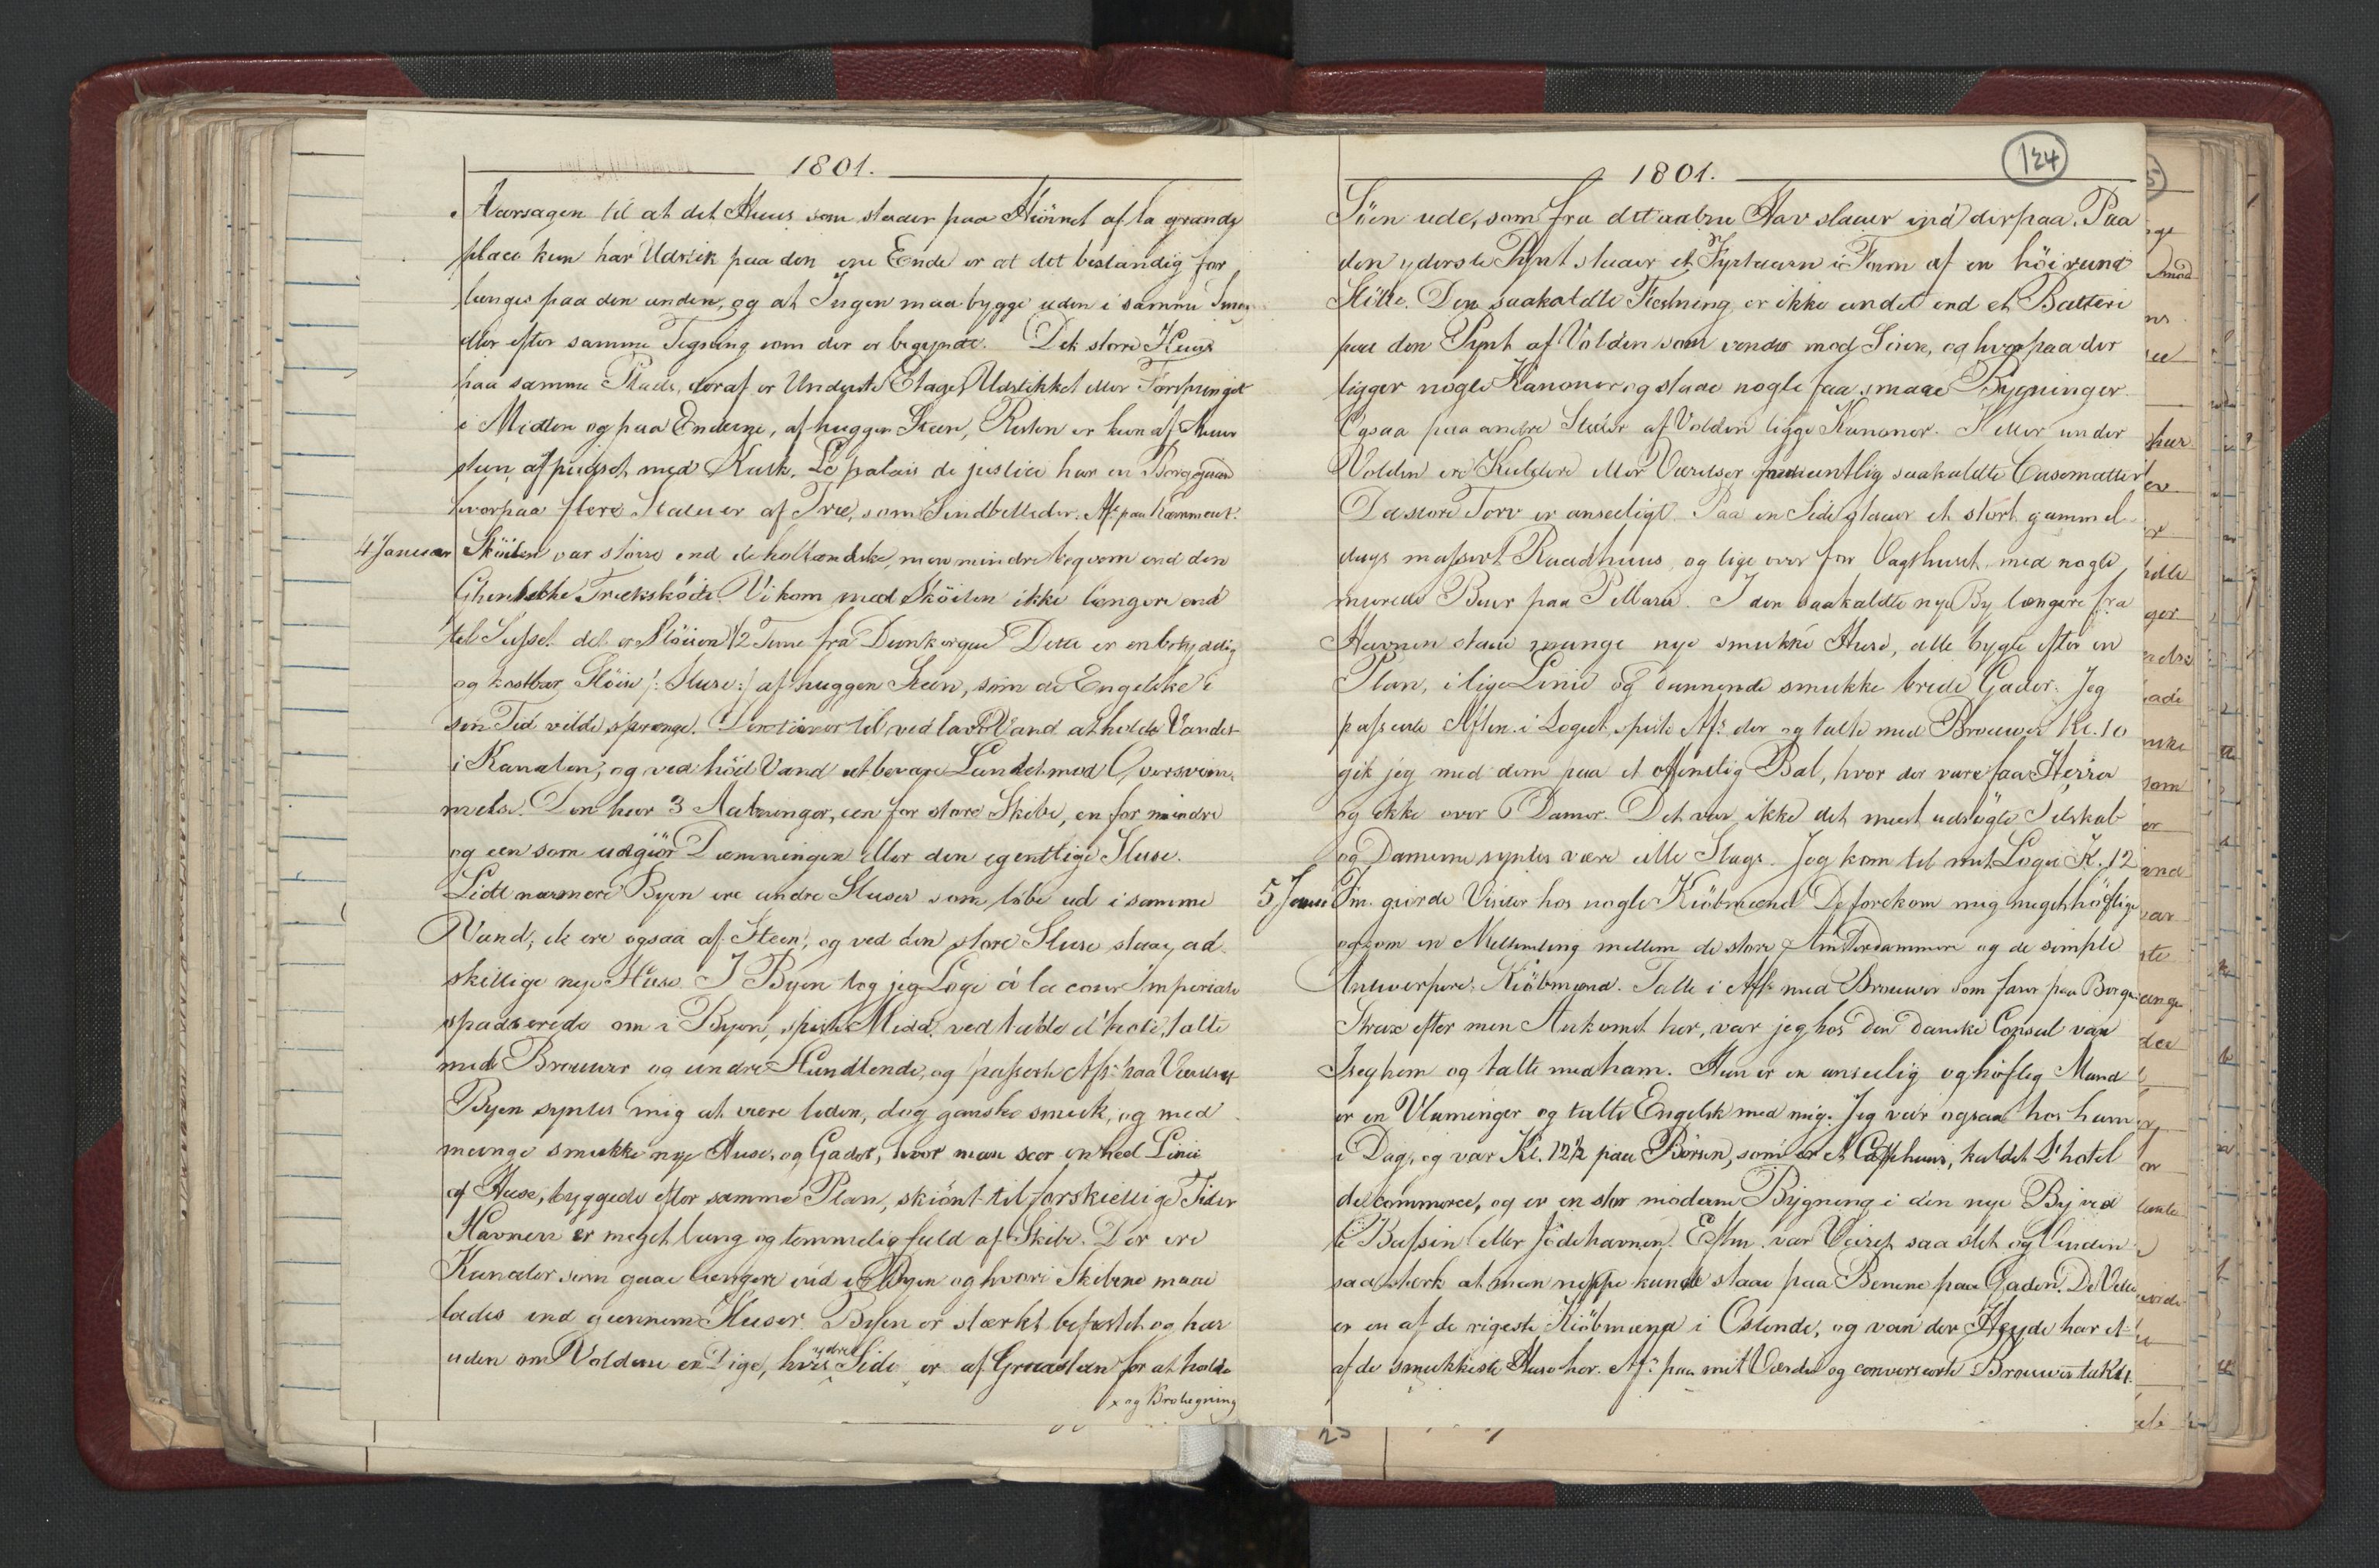 1801.
Aarsagen til at det Huus som staaer paa Hiörnet af la grande
place kun har Udkik paa den ene Ende er at det bestandig for
længes paa den anden, og at Ingen maa bygge uden i samme Smag
eller efter samme Tegning som der er begyndt. Det store Huus
paa samme Plads, deraf er Underste Etage, Udstikket eller Forspringet
i Midten og paa Enderne, af huggen Steen, Resten er kun af Muur
steen afpudset med Kalk. Le palais de justice har en Borggaard
hvorpaa flere Statuer af Træ, som Sindbilleder. Aft: paa Kammeret.
4 Januar Sköiten var större end de hollandske, men mindre beqvem end den
Ghentske Trekskóite. Vi kom med Sköiten ikke længere end
til Susset det er Slöisen 1/2 Time fra Dunkerque Dette er en betydelig
og kostbar Slöise /: Sluse :/ af huggen Steen, som de Engelske i
sin Tid vilde sprænge. Den tiener til ved lavt Vand at holde Vandet
i Kanalen, og ved höit Vand at bevare Landet mod Oversvöm-
melse. Den har 3 Aabninger, een for store Skibe, en for mindre
og een som udgiör Dæmningen eller den egentlige Sluse.
Lidt nærmere Byen ere andre Sluser som löbe ud i samme
Vand, de ere ogsaa af Steen, og ved den store Sluse staae ad-
skillige nye Huse. I Byen tog jeg Logi á la cour Imperiale
spadserede om i Byen, spiste Midd. ved table d'hote, talte
med Brouwer og andre Handlende, og passerte Aft: paa Værelset
Byen syntes mig at være liden, dog ganske smuk, og med
mange smukke nye Huse, og Gader, hvor man seer en heel Linie
af Huse, byggede efter samme Plan, skiönt til forskiellige Tider
Havnen er meget lang og temmelig fuld af Skibe. Der ere
Kanaler som gaae længere ind i Byen og hvori Skibene maae
lades ind giennem Sluser. Byen er stærkt befæstet og har
uden om Voldene en Dige, hvis ydre Side er af Graasteen for at holde
x og Brolegning
124
1801.
Söen ude, som fra det aabne Hav slaaer ind derpaa. Paa
den yderste Pynt staaer et Fyrtaarn i Form af en höi rund
Stötte. Den saakaldte Fæstning er ikke andet end et Batteri
paa den Pynt af Volden som vender mod Söen, og hvorpaa der
ligger nogle Kanoner og staae nogle faa smaae Bygninger.
Ogsaa paa andre Steder af Volden ligge Kanoner. I eller under
Volden ere Kieldere eller Værelser saakaldte Casematter
Det store Torv er anseeligt. Paa en Side staaer et stort gammel-
dags massivt Raadhuus, og lige over for Vagthuset med nogle
murede Buer paa Pillarer. I den saakaldte nye By længere fra
Havnen staae mange nye smukke Huse, alle bygte efter en
Plan, i lige Linie og dannende smukke brede Gader. Jeg
passerede Aften i Logiet, spiste Aft: der og talte med Brouwer Kl. 10
gik jeg med dem paa et offentlig Bal, hvor der vare faa Herrer
og ikke over 6 Damer. Det var ikke det mest udsögte Selskab
og Damerne syntes være ille Slags. Jeg kom til mit Logie Kl. 12
5 Janu Fm. giorde Visiter hos nogle Kiöbmænd De forekom mig meget höflige
og som en Mellemting mellem de store Amsterdammere og de simple
Antwerpere Kiöbmænd. Talte i Aft: med Brouwer som farer paa Bergen
Strax efter min Ankomst her, var jeg hos den danske Consul van
Iseghem og talte med ham. Han er en anseelig og höflig Mand
er en Vlaminger og talte Engelsk med mig. Jeg var ogsaa hos ham
i Dag, og var Kl. 12 1/2 paa Börsen, som er et Caffehuus, kaldet L'hotel
de commerce, og er en stor moderne Bygning i den nye By ved
le Bassin eller Födehavnen. Eftm. var Veiret saa slet og Vinden
saa stærk at man neppe kunde staae paa Benene paa Gaden. De Vette
er en af de rigeste Kiöbmænd i Ostende, og van der Heyde har et
af de smukkeste Huse her. Aft: paa mit Værelse og converserte Brouwer